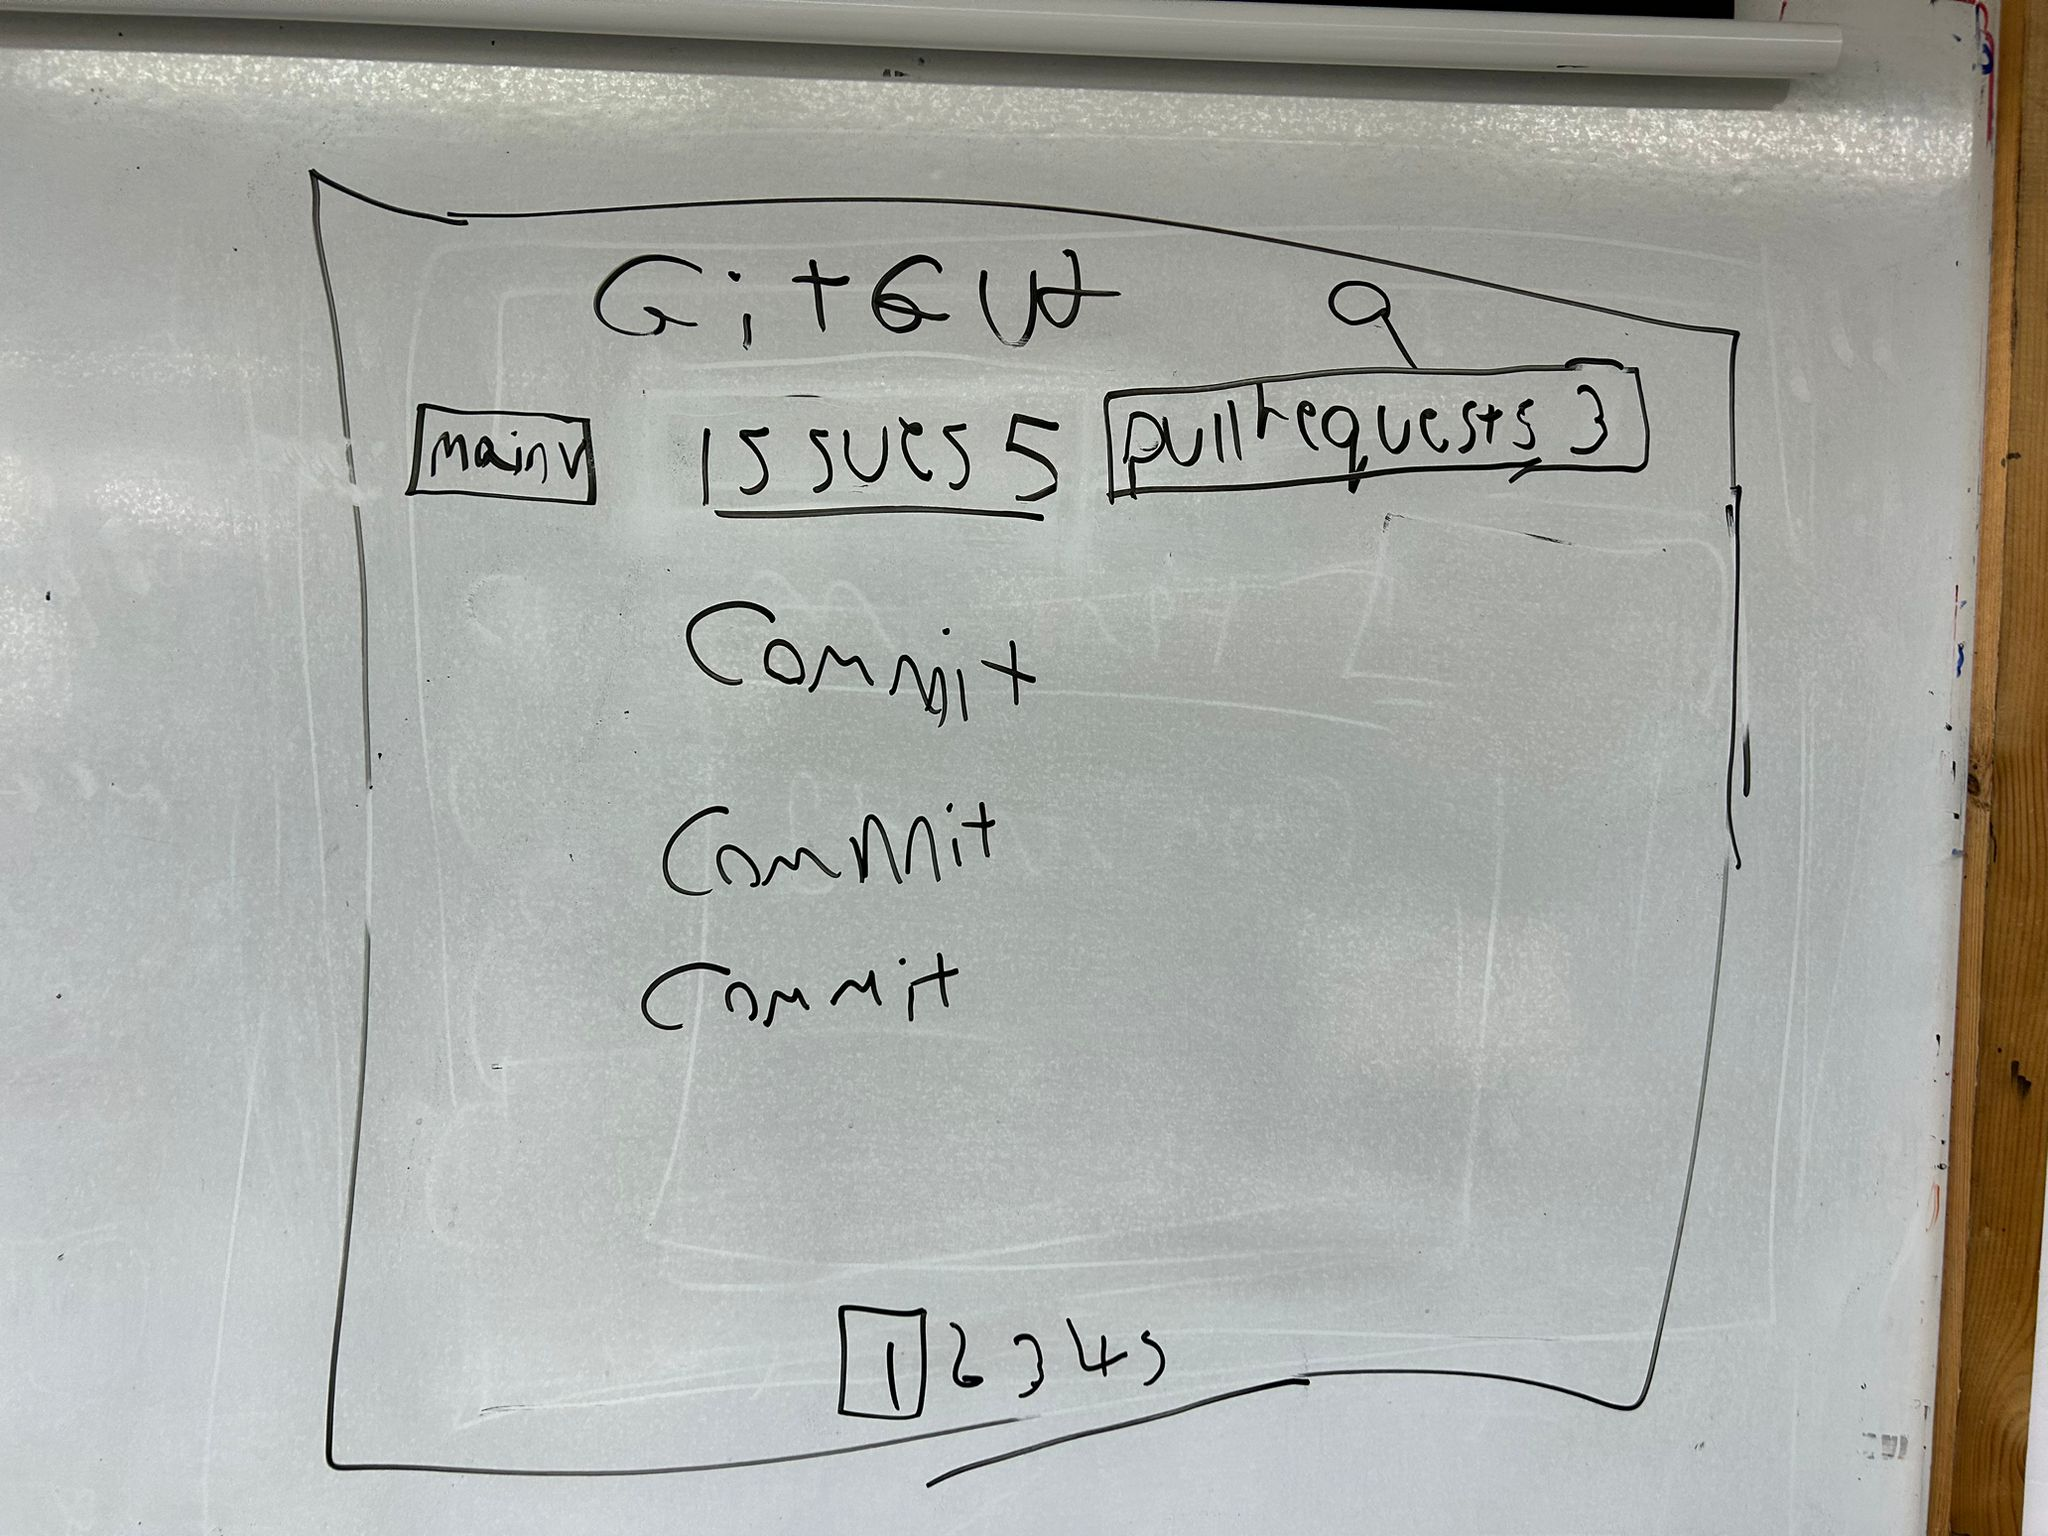 GitGud
main v Issues 5 pull requests 3
Commit
Commit
Commit
1 2 3 4 5